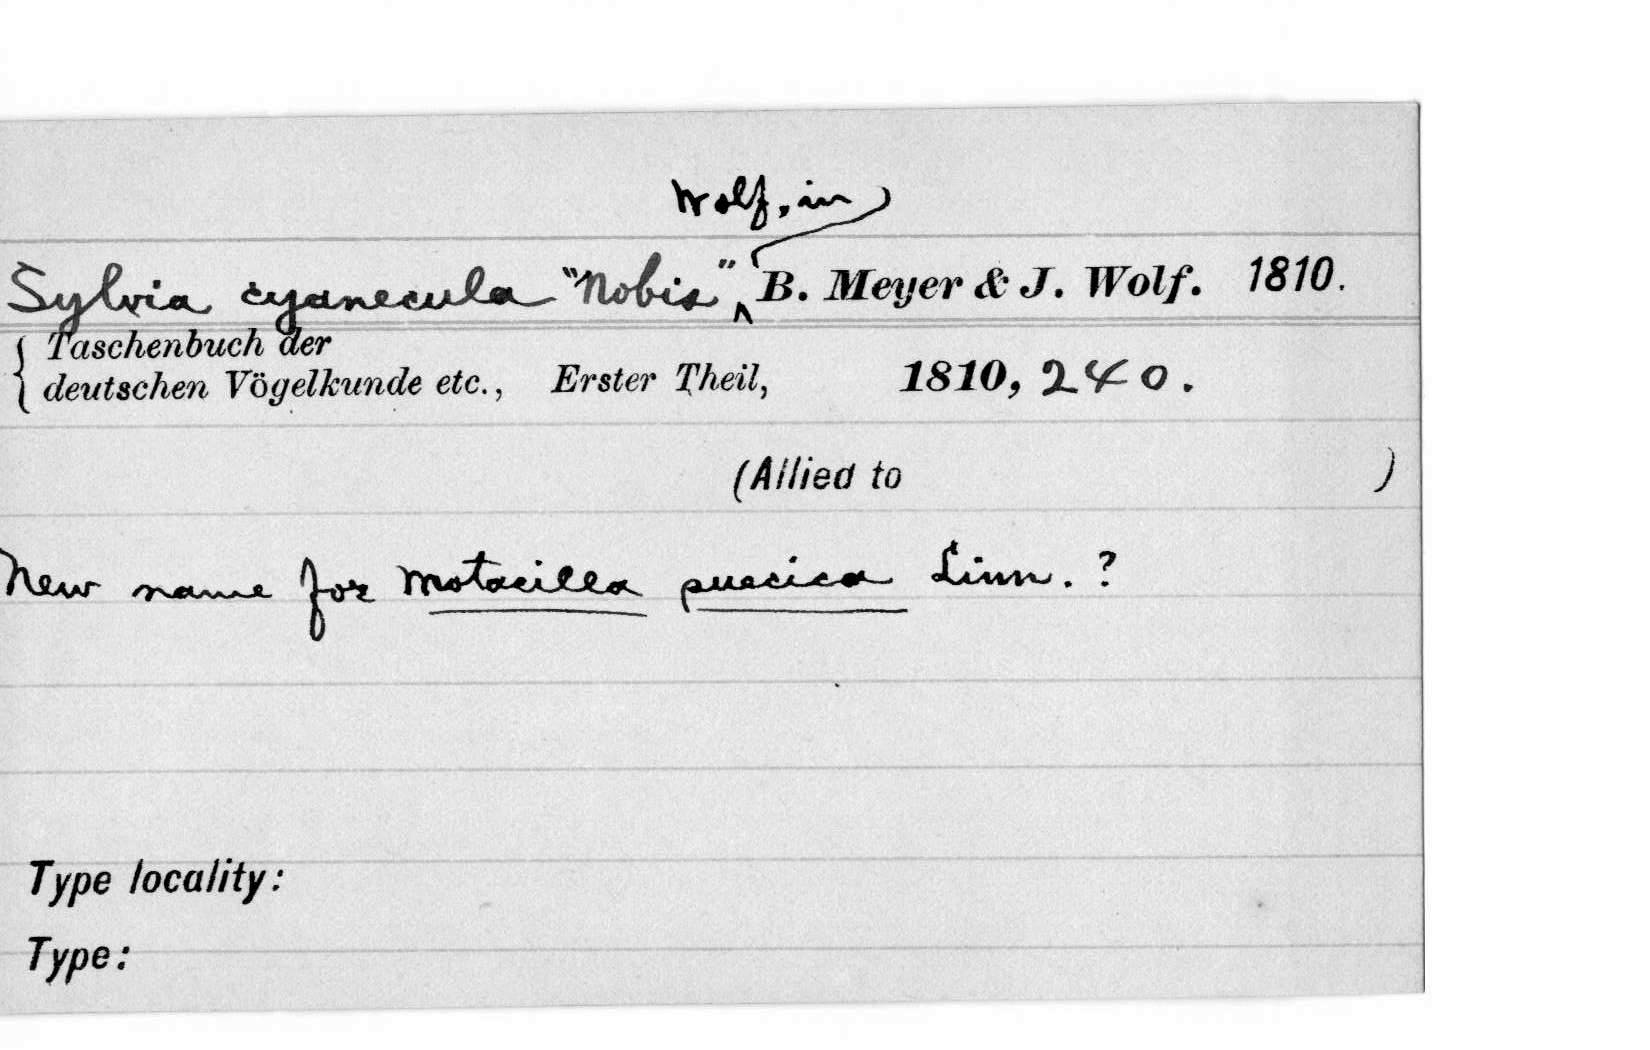 Wolf, in
Sylvia cyanecula "Nobis" B. Meyer & J. Wolf. 1810.
Taschenbuch der
deutschen Vögelkunde etc., Erster Theil, 1810, 240.
(Allied to )
New name for Motacilla suecica Linn. ?
Type locality:
Type: